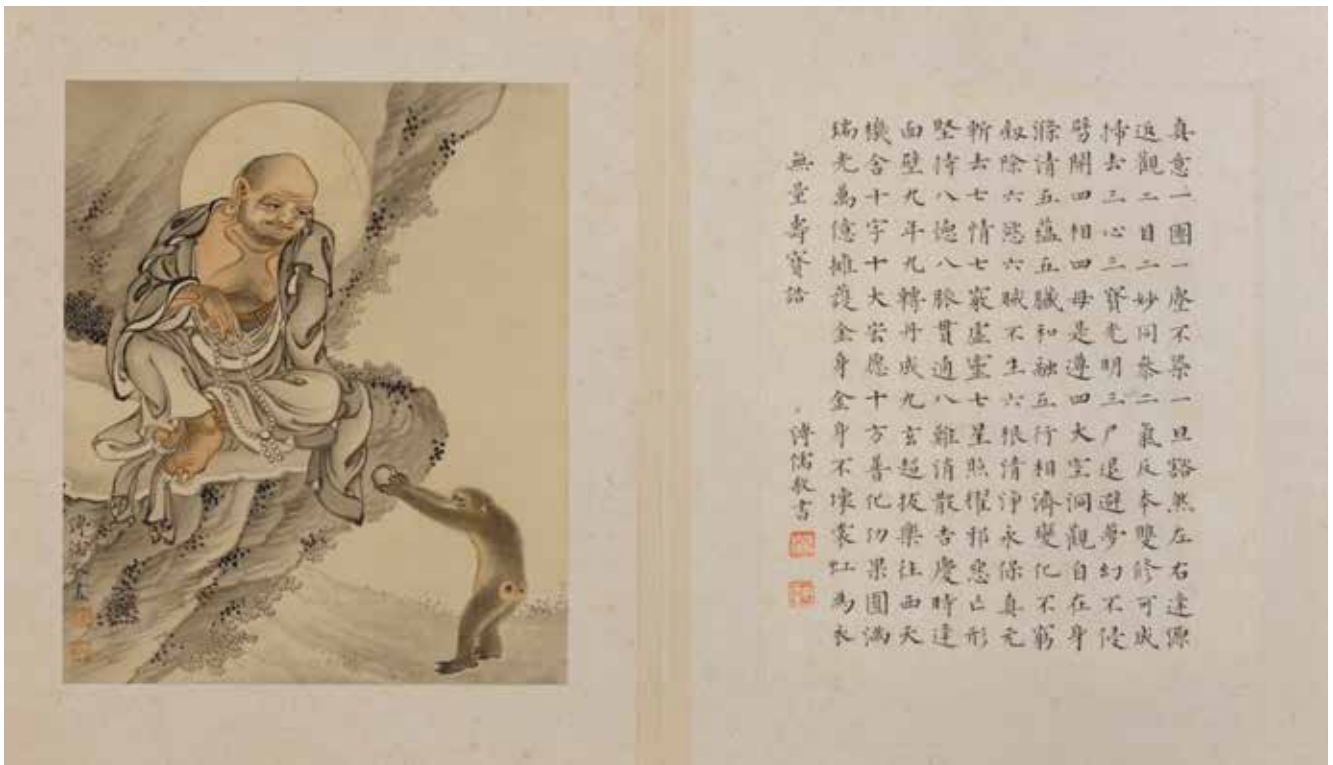 真意一團一塵不染一旦豁然左右逢源
返觀二目二妙同參二氣反本雙修可成
掃去三心三寶光明三尸退避夢幻不侵
劈開四相四母是遵四大空洞觀自在身
滌清五蘊五臟和融五行相濟變化不窮
除六慾六賊不生六根清淨永保真元
斬去七情七竅虛靈七星照耀邪惡亡形
堅持八德八脈貫通八難消散吉慶時逢
面壁九年九轉丹成九玄超拔樂往西天
機含十字十大宏愿十方普化功果圓滿
瑞光萬億擁護金身金身不壞裳虹為衣
無量壽寶誥
溥儒敬書
溥儒敬畫